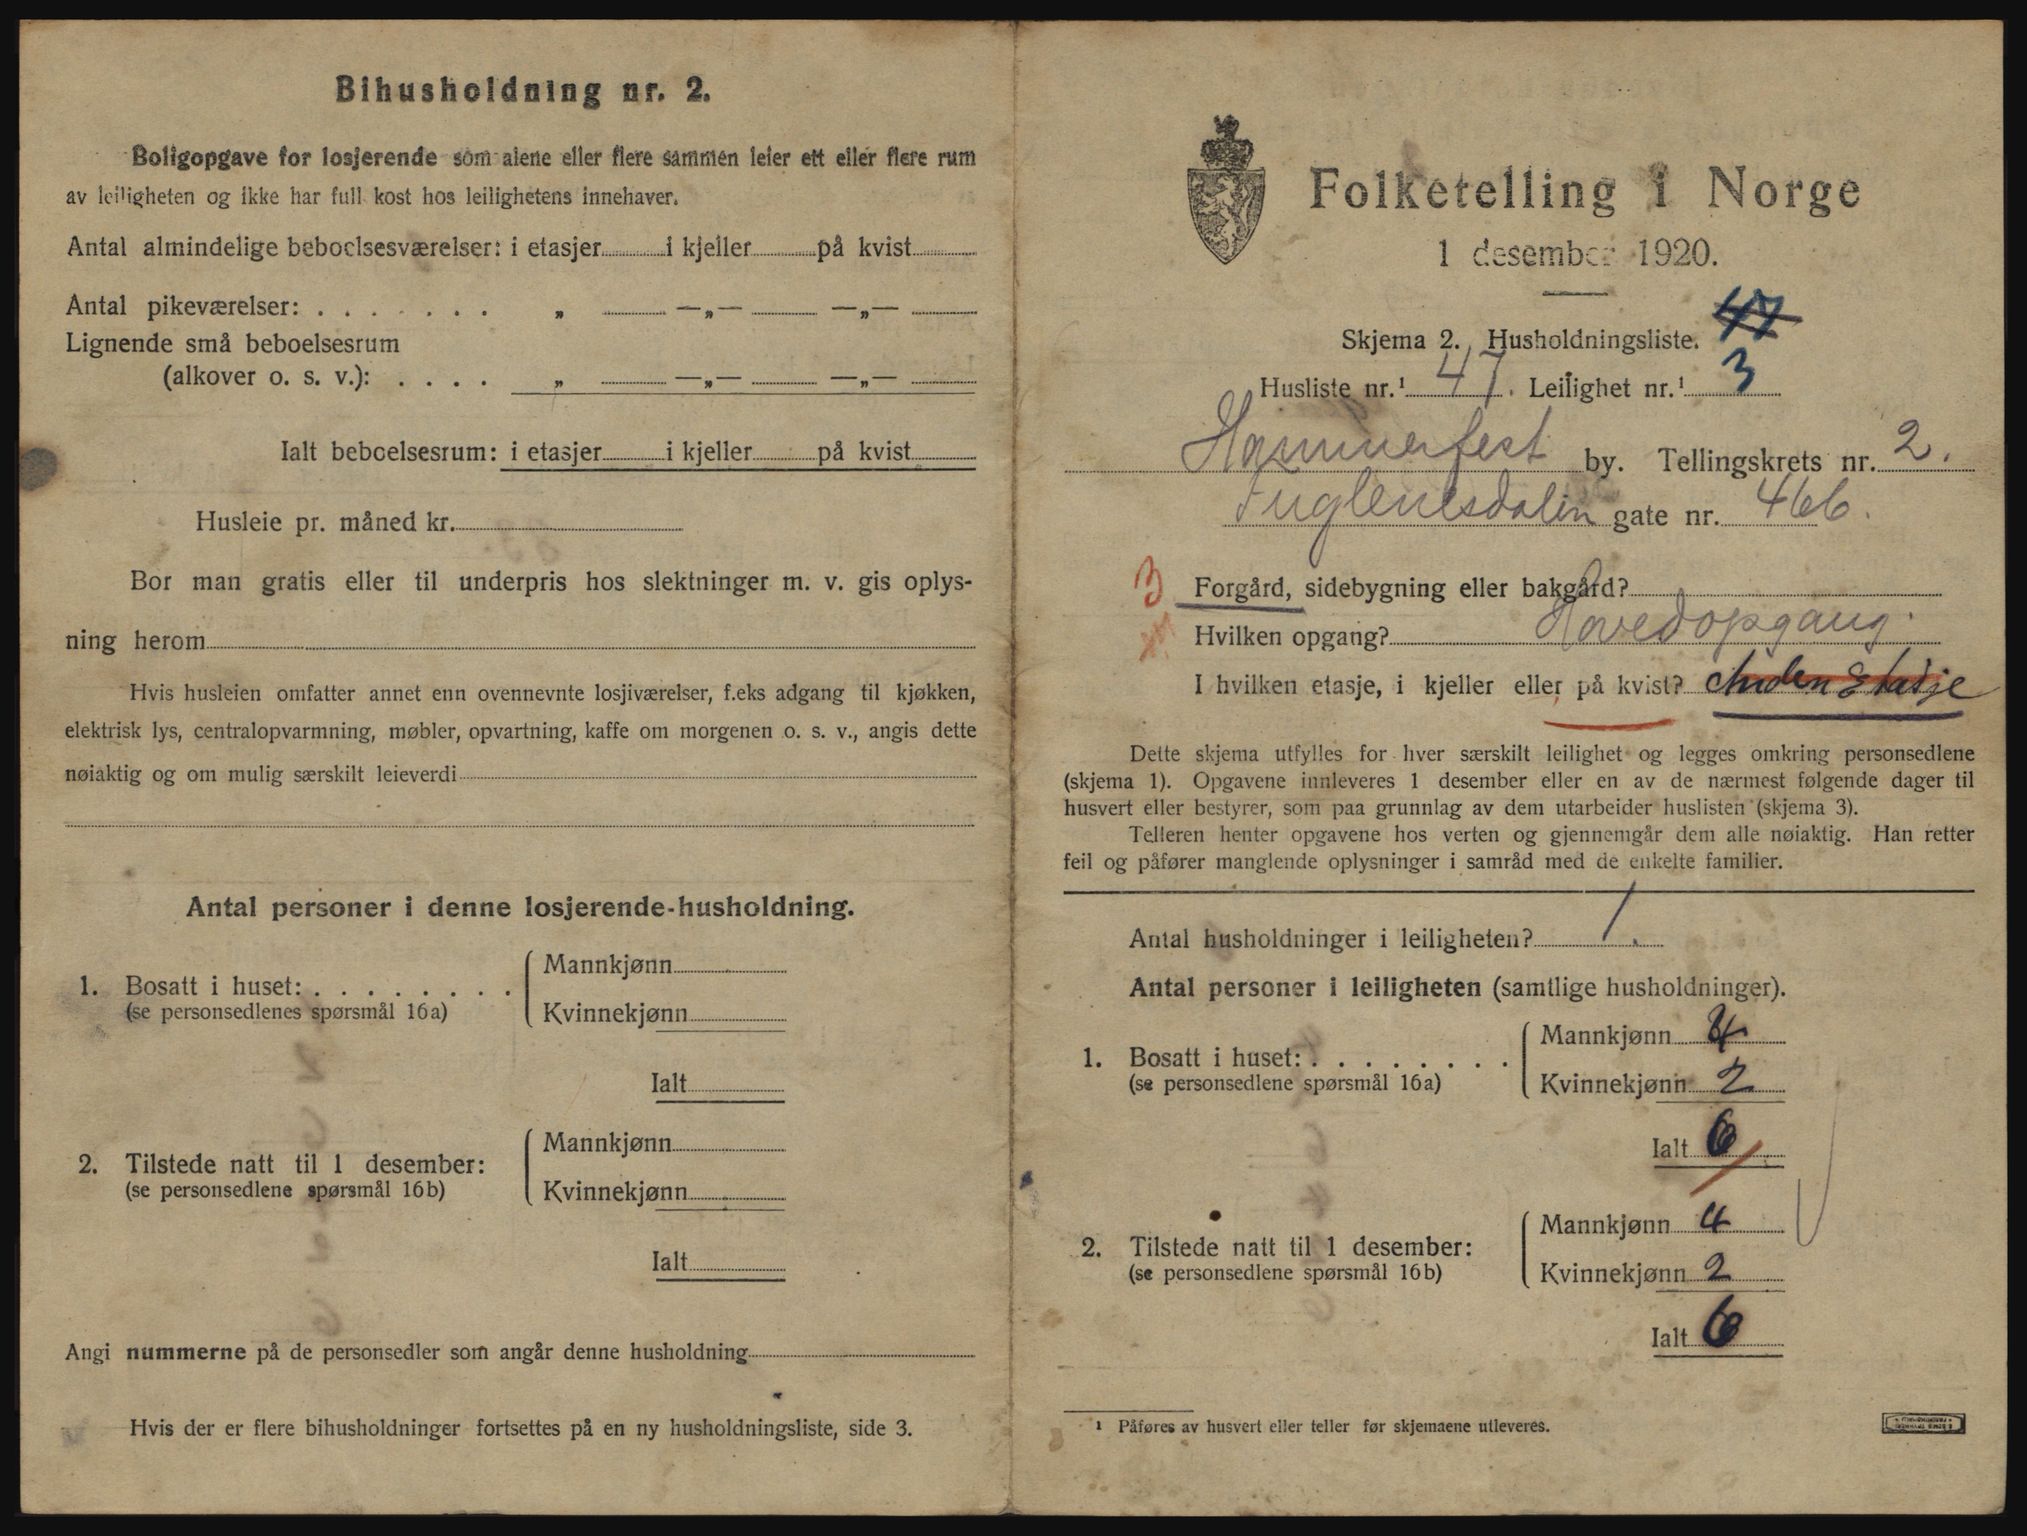 Bihusholdning nr. 2.
Boligopgave for losjerende som alene eller flere sammen leier ett eller flere rum
av leiligheten og ikke har full kost hos leilighetens innehaver.
Antal almindelige beboelsesværelser: i etasjer i kjeller på kvist
Antal pikeværelser: . . . . . . . „ —„— —„—
Lignende små beboelsesrum
(alkover o. s. v.): . . . . „ —„— —„—
Ialt beboelsesrum: i etasjer i kjeller på kvist
Husleie pr. måned kr.
Bor man gratis eller til underpris hos slektninger m. v. gis oplys-
ning herom
Hvis husleien omfatter annet enn ovennevnte losjiværelser, f.eks adgang til kjøkken,
elektrisk lys, centralopvarmning, møbler, opvartning, kaffe om morgenen o. s. v., angis dette
nøiaktig og om mulig særskilt leieverdi
Antal personer i denne losjerende-husholdning.
1. Bosatt i huset: . . . . . . . . Mannkjønn
(se personsedlenes spørsmål 16a) Kvinnekjønn
Ialt
2. Tilstede natt til 1 desember: Mannkjønn
(se personsedlene spørsmål 16b) Kvinnekjønn
Ialt
Angi nummerne på de personsedler som angår denne husholdning
Hvis der er flere bihusholdninger fortsettes på en ny husholdningsliste, side 3.
Folketelling i Norge
1 desember 1920.
Skjema 2. Husholdningsliste. 47
Husliste nr.¹ 47. Leilighet nr.¹ 3
Hammerfest by. Tellingskrets nr. 2.
Fuglenesdalen gate nr. 466.
3 Forgård, sidebygning eller bakgård?
Hvilken opgang? Hovedopgang.
I hvilken etasje, i kjeller eller på kvist? Anden Etasje
Dette skjema utfylles for hver særskilt leilighet og legges omkring personsedlene
(skjema 1). Opgavene innleveres 1 desember eller en av de nærmest følgende dager til
husvert eller bestyrer, som paa grunnlag av dem utarbeider huslisten (skjema 3).
Telleren henter opgavene hos verten og gjennemgår dem alle nøiaktig. Han retter
feil og påfører manglende oplysninger i samråd med de enkelte familier.
Antal husholdninger i leiligheten? 1.
Antal personer i leiligheten (samtlige husholdninger).
1. Bosatt i huset: . . . . . . . . Mannkjønn 4
(se personsedlene spørsmål 16a) Kvinnekjønn 2
Ialt 6
2. Tilstede natt til 1 desember: Mannkjønn 4
(se personsedlene spørsmål 16b) Kvinnekjønn 2
Ialt 6
¹ Påføres av husvert eller teller før skjemaene utleveres.